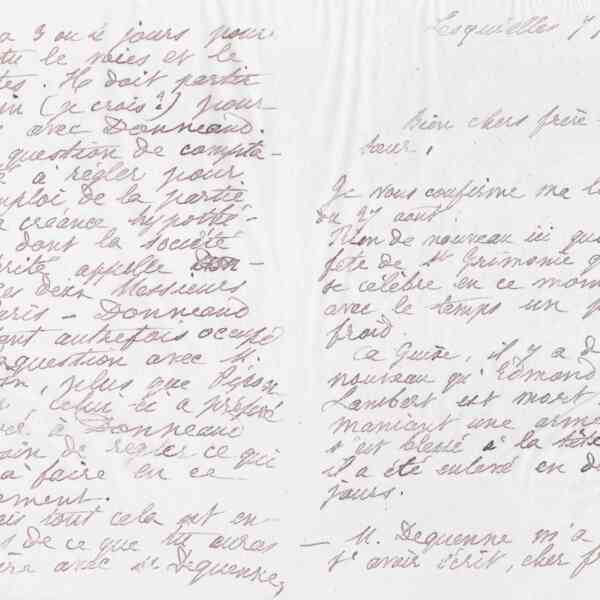 a 3 ou 4 jours pour
tu le voies et le
tes. Il doit partir
in (je crois?) pour
avec Donneaud.
question de compta-
à régler pour
mploi de la partie
a créance hypothé-
dont la société
rité appelle Don-
deux Messieurs
aris - Donneaud
ant autrefois occupé
question avec M.
on, plus que Péron
celui-ci a préféré
à Donneaud
in de régler ce qui
à faire en ce
ement.
is tout cela est en-
s de ce que tu auras
ire avec Mr Dequenne,
Lesquielles 7
Bien chers frère
Soeur,
Je vous confirme ma l
du 27 août
Rien de nouveau ici que
fête de St Grimonie q
se célèbre en ce mom
avec le temps un p
froid.
A Guise, il y a d
nouveau qu'Edmond
Lambert est mort
maniant une arme
s'est blessé à la tête
il a été enlevé en d
jours.
— M. Dequenne m'a
t'avoir écrit, cher f